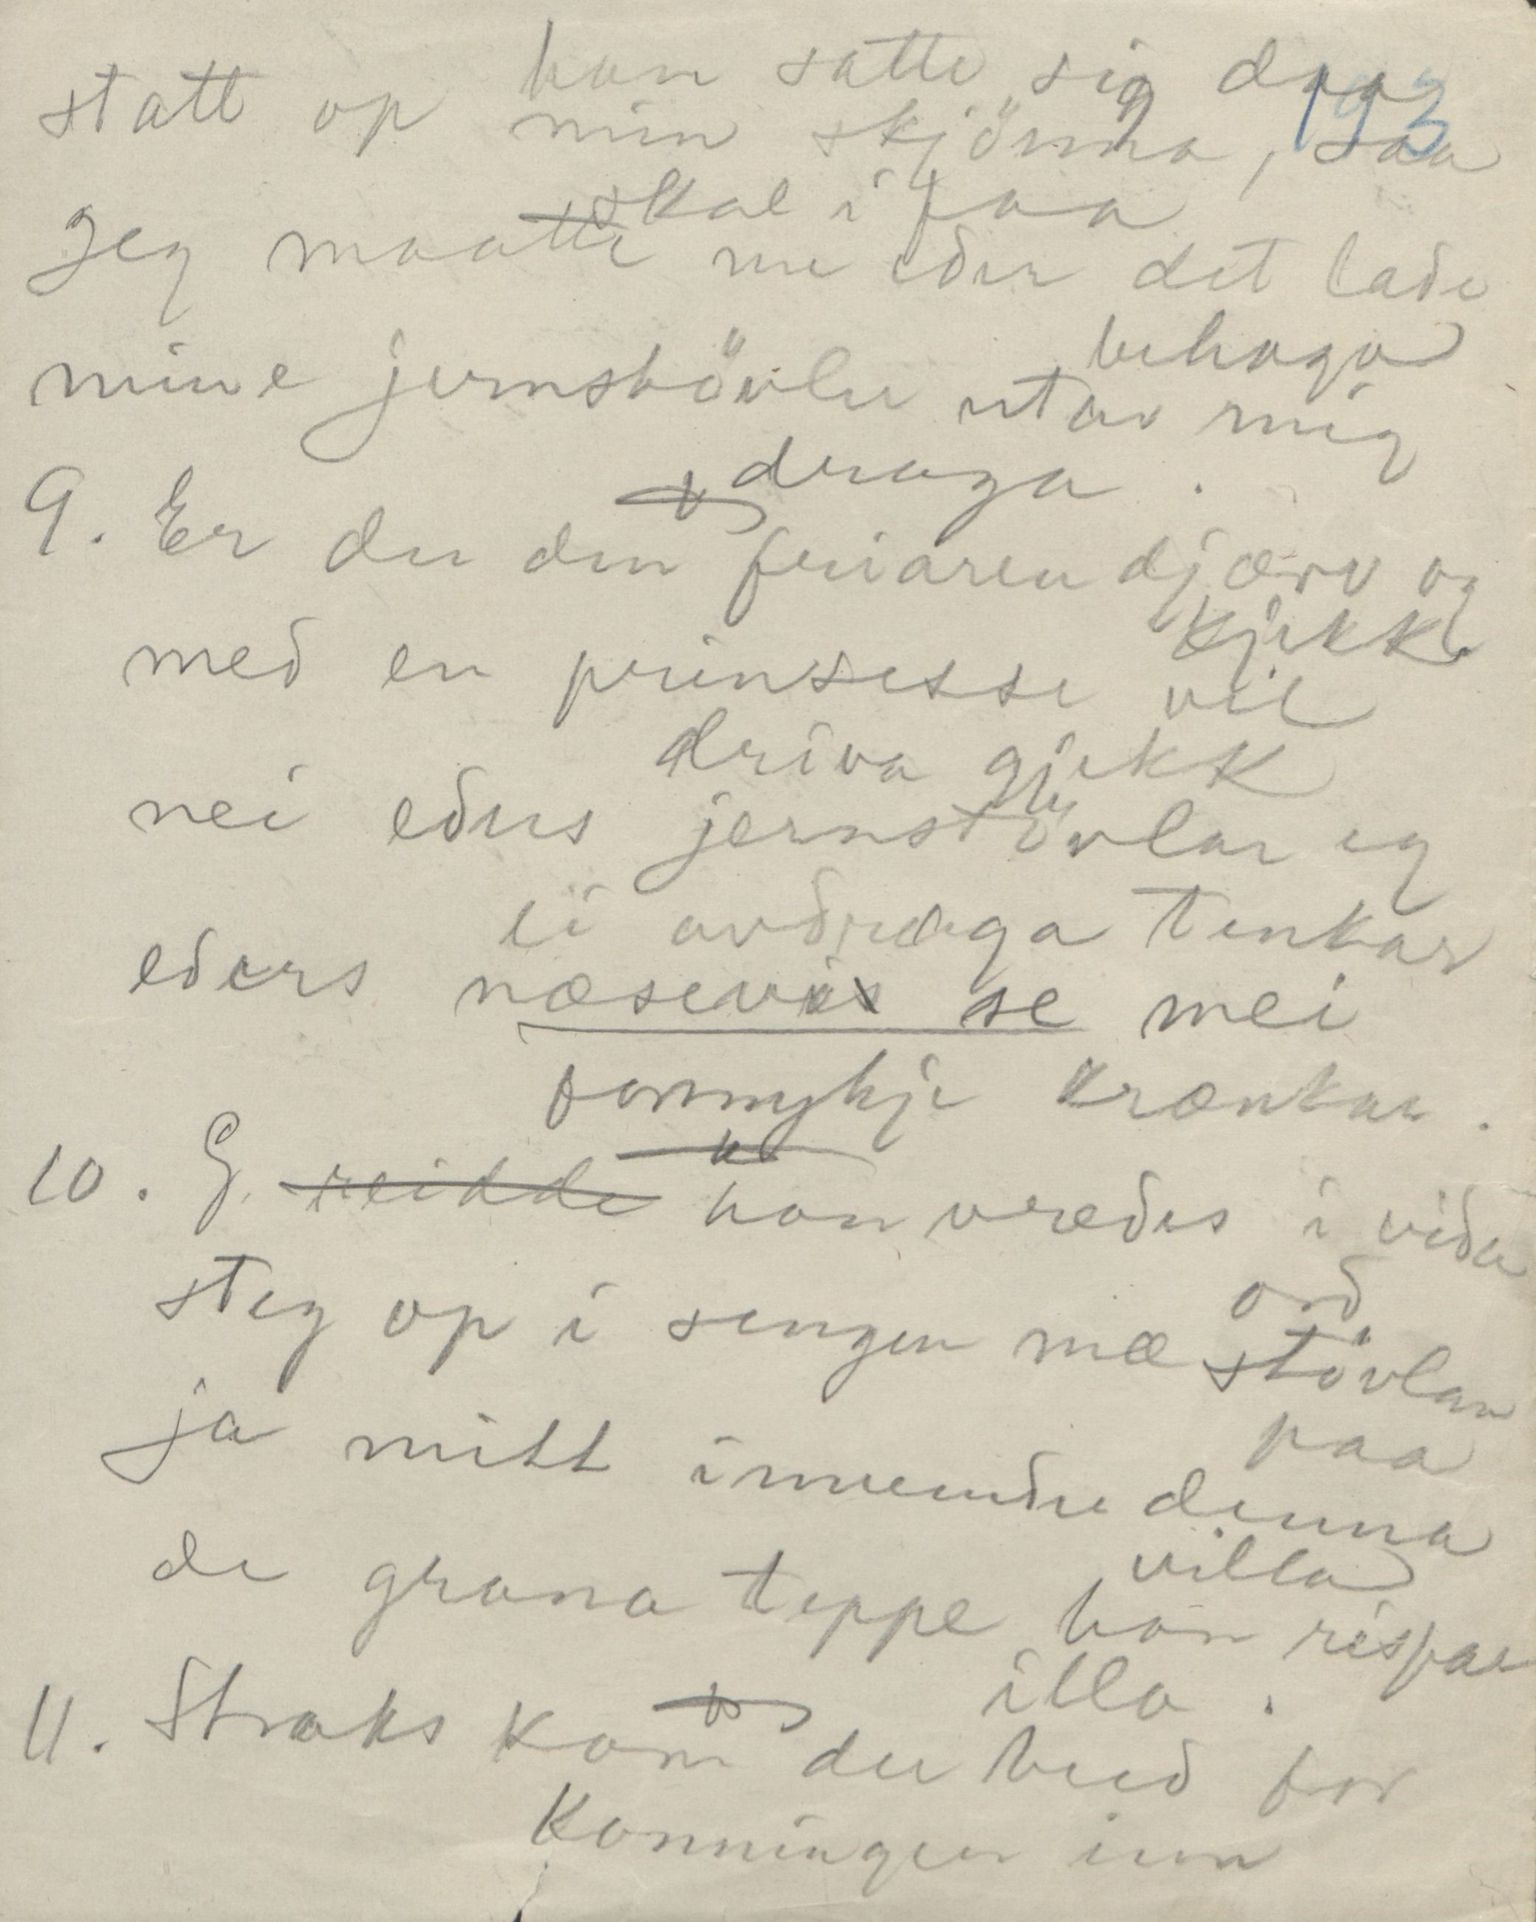 193
han satte sig daa
statt op min skjönna, saa
skal i faa
jeg maatte me eder det lade
behaga
mine jernstövler utav mig
draga.
9. Er du den friaren djærv og
kjekk
med en prinsesse vil
driva gjekk
nei eders jernstövlar eg
ei avdraga tenkar
eders næsevis se mei
formykje krænkar.
10. G. reidde han vredes i vida
ord
steg op i sengen mæ stövlan
paa
ja mitt innendre denna
villa
de grana teppe han rispar
illa.
11. Straks kom der bud for
Konningen inn